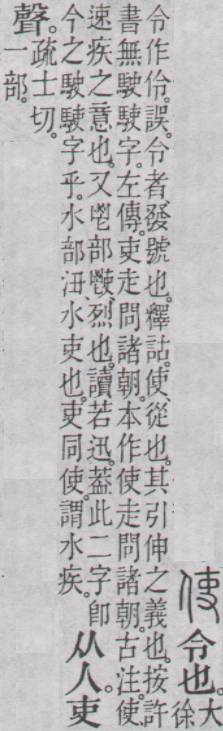 令也。大
徐
令作伶。誤。令者、發號也。釋詁。使、從也。其引伸之義也。按許
書無駛駛字。左傳。吏走問諸朝。本作使走問諸朝。古注。使、
速疾之意也。又鬯部𩰥、烈也。讀若迅。葢此二字卽
今之駛駛字乎。水部沑、水吏也。吏同使。謂水疾。
从人。吏
聲。疏士切。
一部。